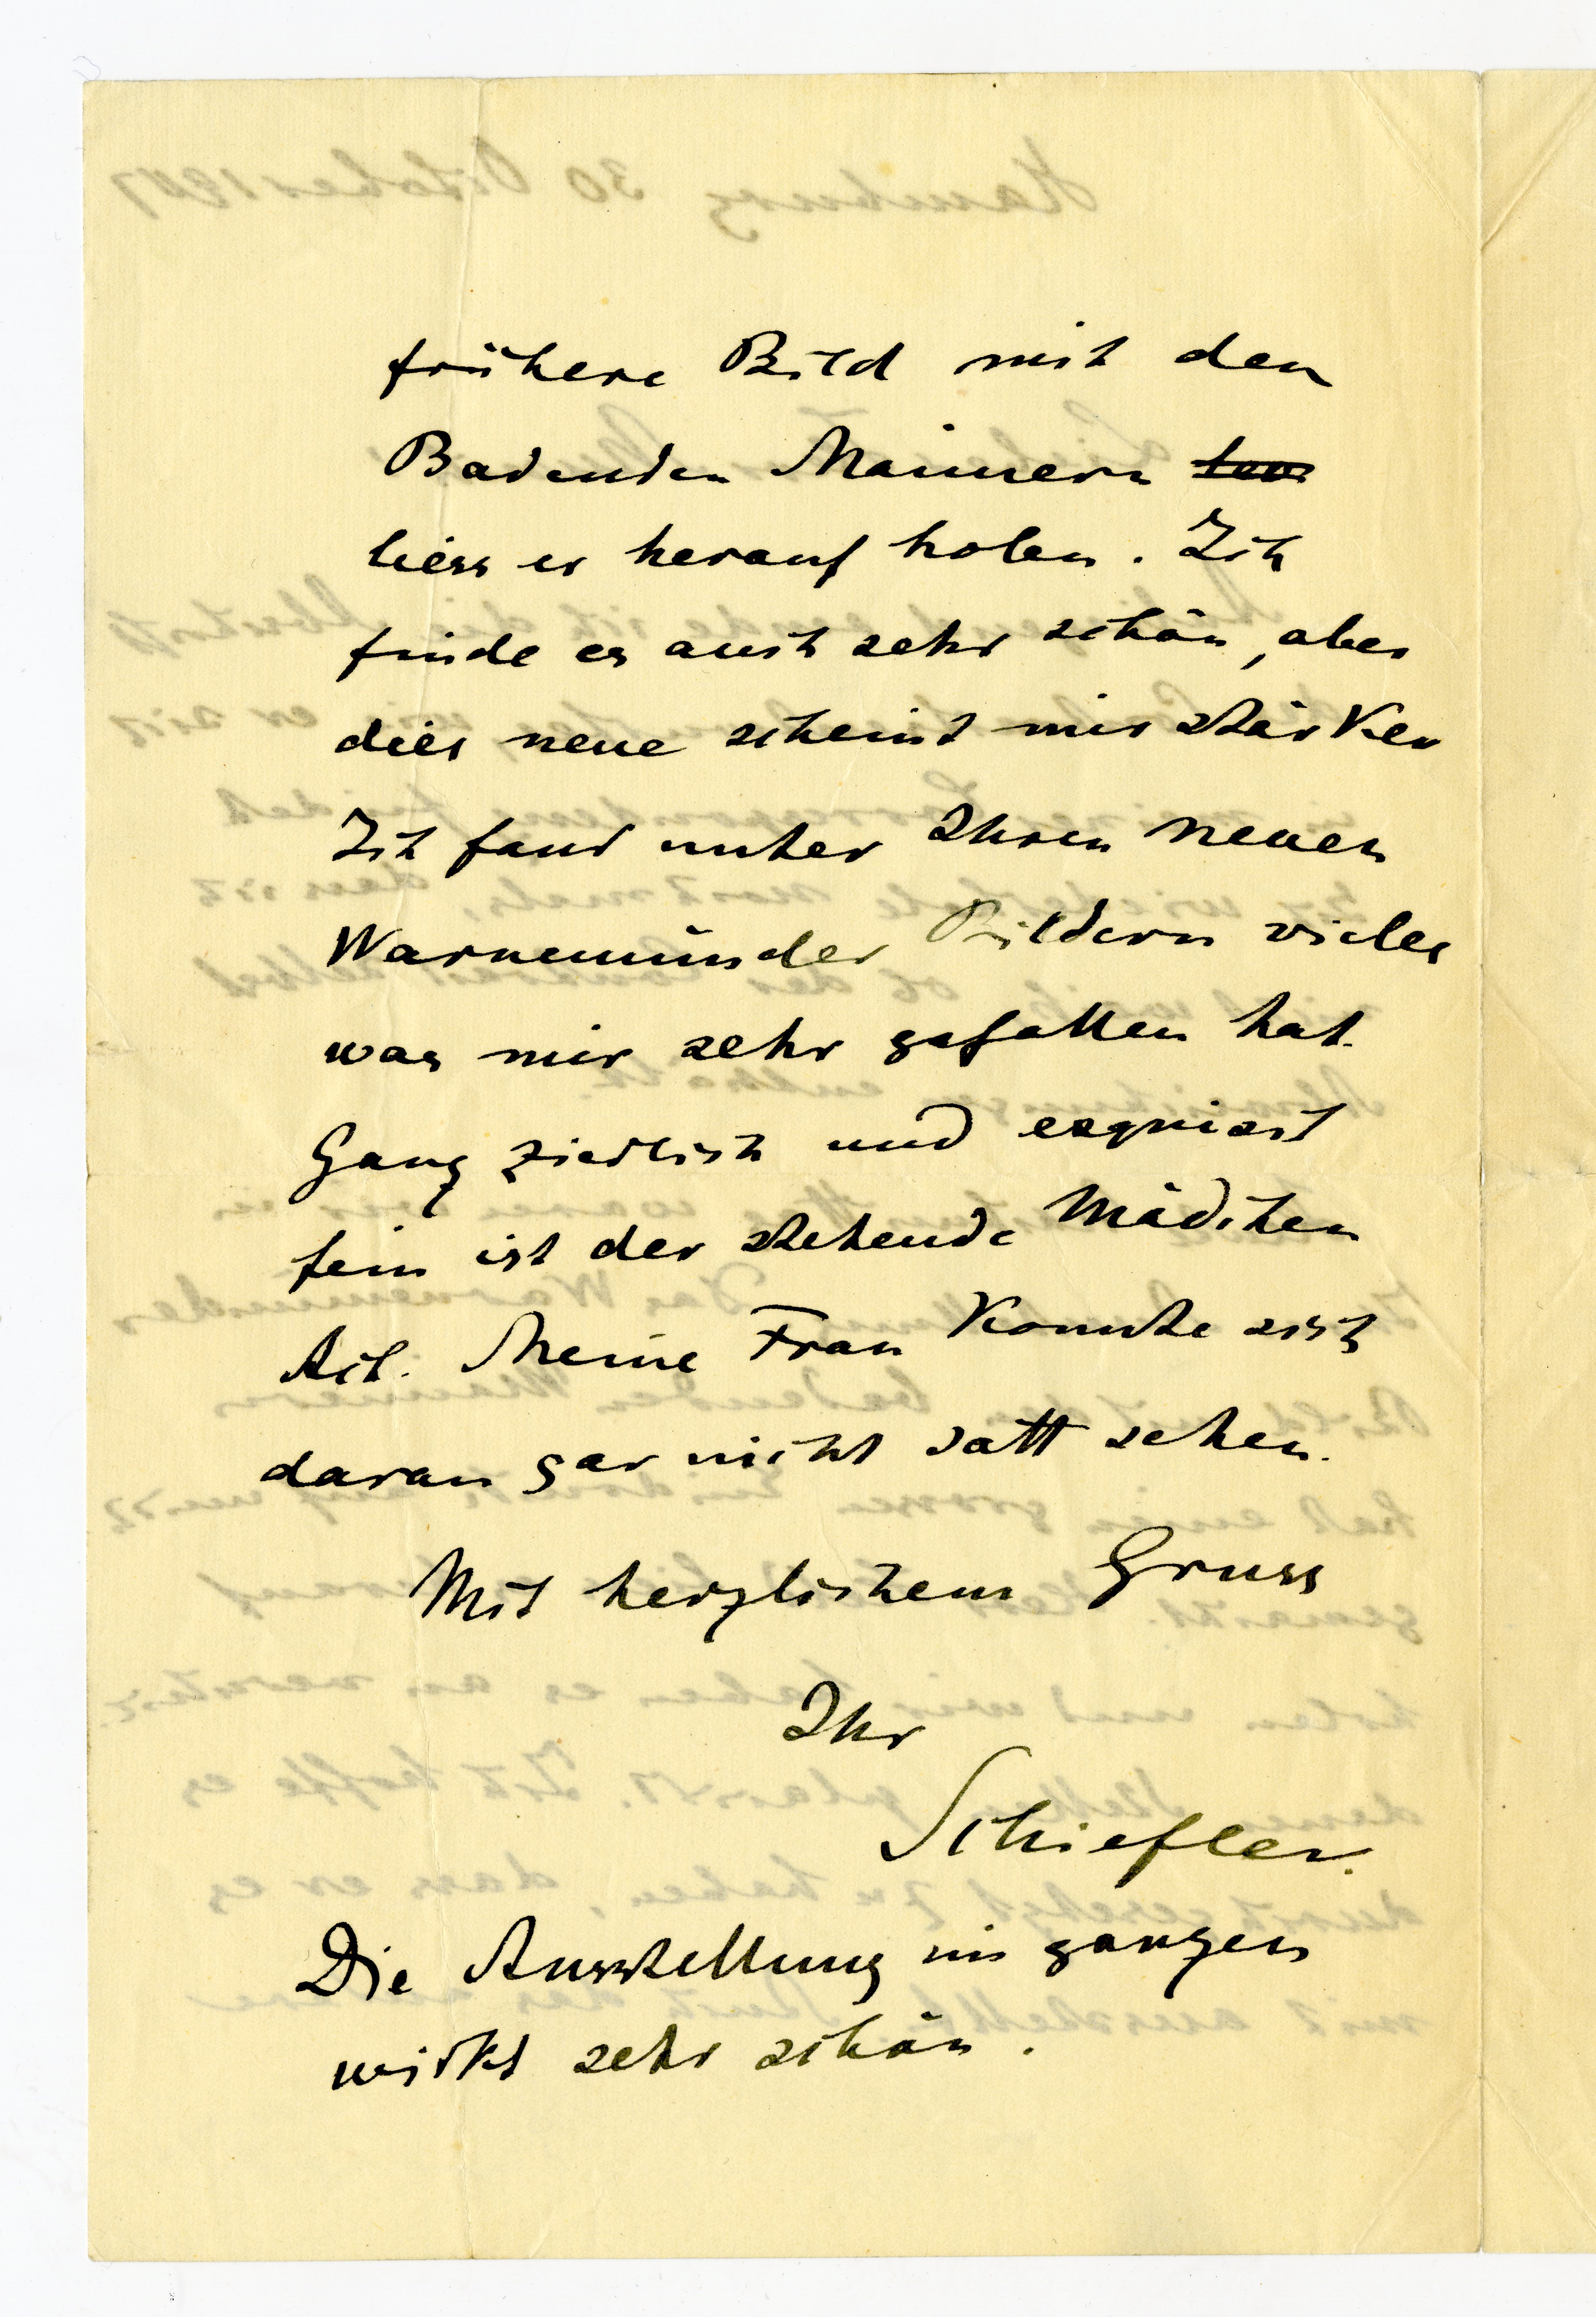 frühere Bild mit den
Badenden Männern
liess er herauf holen. Ich
finde es auch sehr schön, aber
dies neue scheint mir stärker
Ich fand unter Ihren neuen
Warnemünder Bildern vieles
was mir sehr gefallen hat.
Ganz zierlich und exquisit
fein ist der stehende Mädchen
Act. Meine Frau konnte sich
daran gar nicht satt sehen.
Mit herzlichem Gruss
Ihr
Schiefler.
Die Ausstellung im ganzen
wirkt sehr schön.